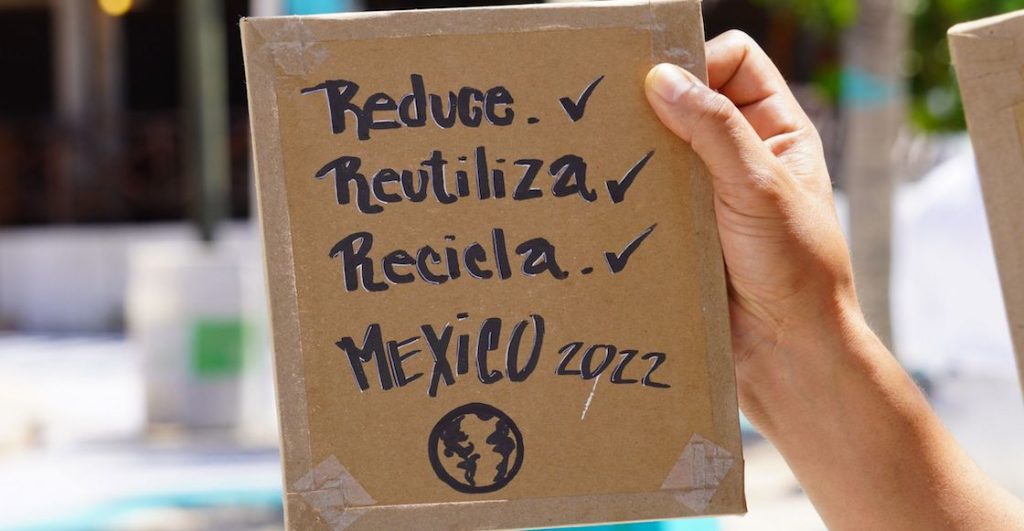 Reduce. ✓
Reutiliza ✓
Recicla. ✓
MEXICO 2022